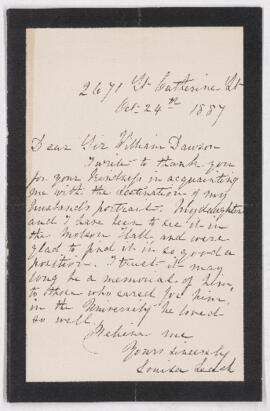 2671 St Catherine St
Oct 24th 1887
Dear Sir William Dawson
I write to thank you
for your kindness in acquainting
me with the destination of my
husband's portrait. My daughter
and I have been to see it in
the Molson Hall and were
glad to find it in so good a
position. I trust it may
long be a memorial of him
to those who cared for him,
in the University he loved
so well.
Believe me
Yours sincerely
Louisa